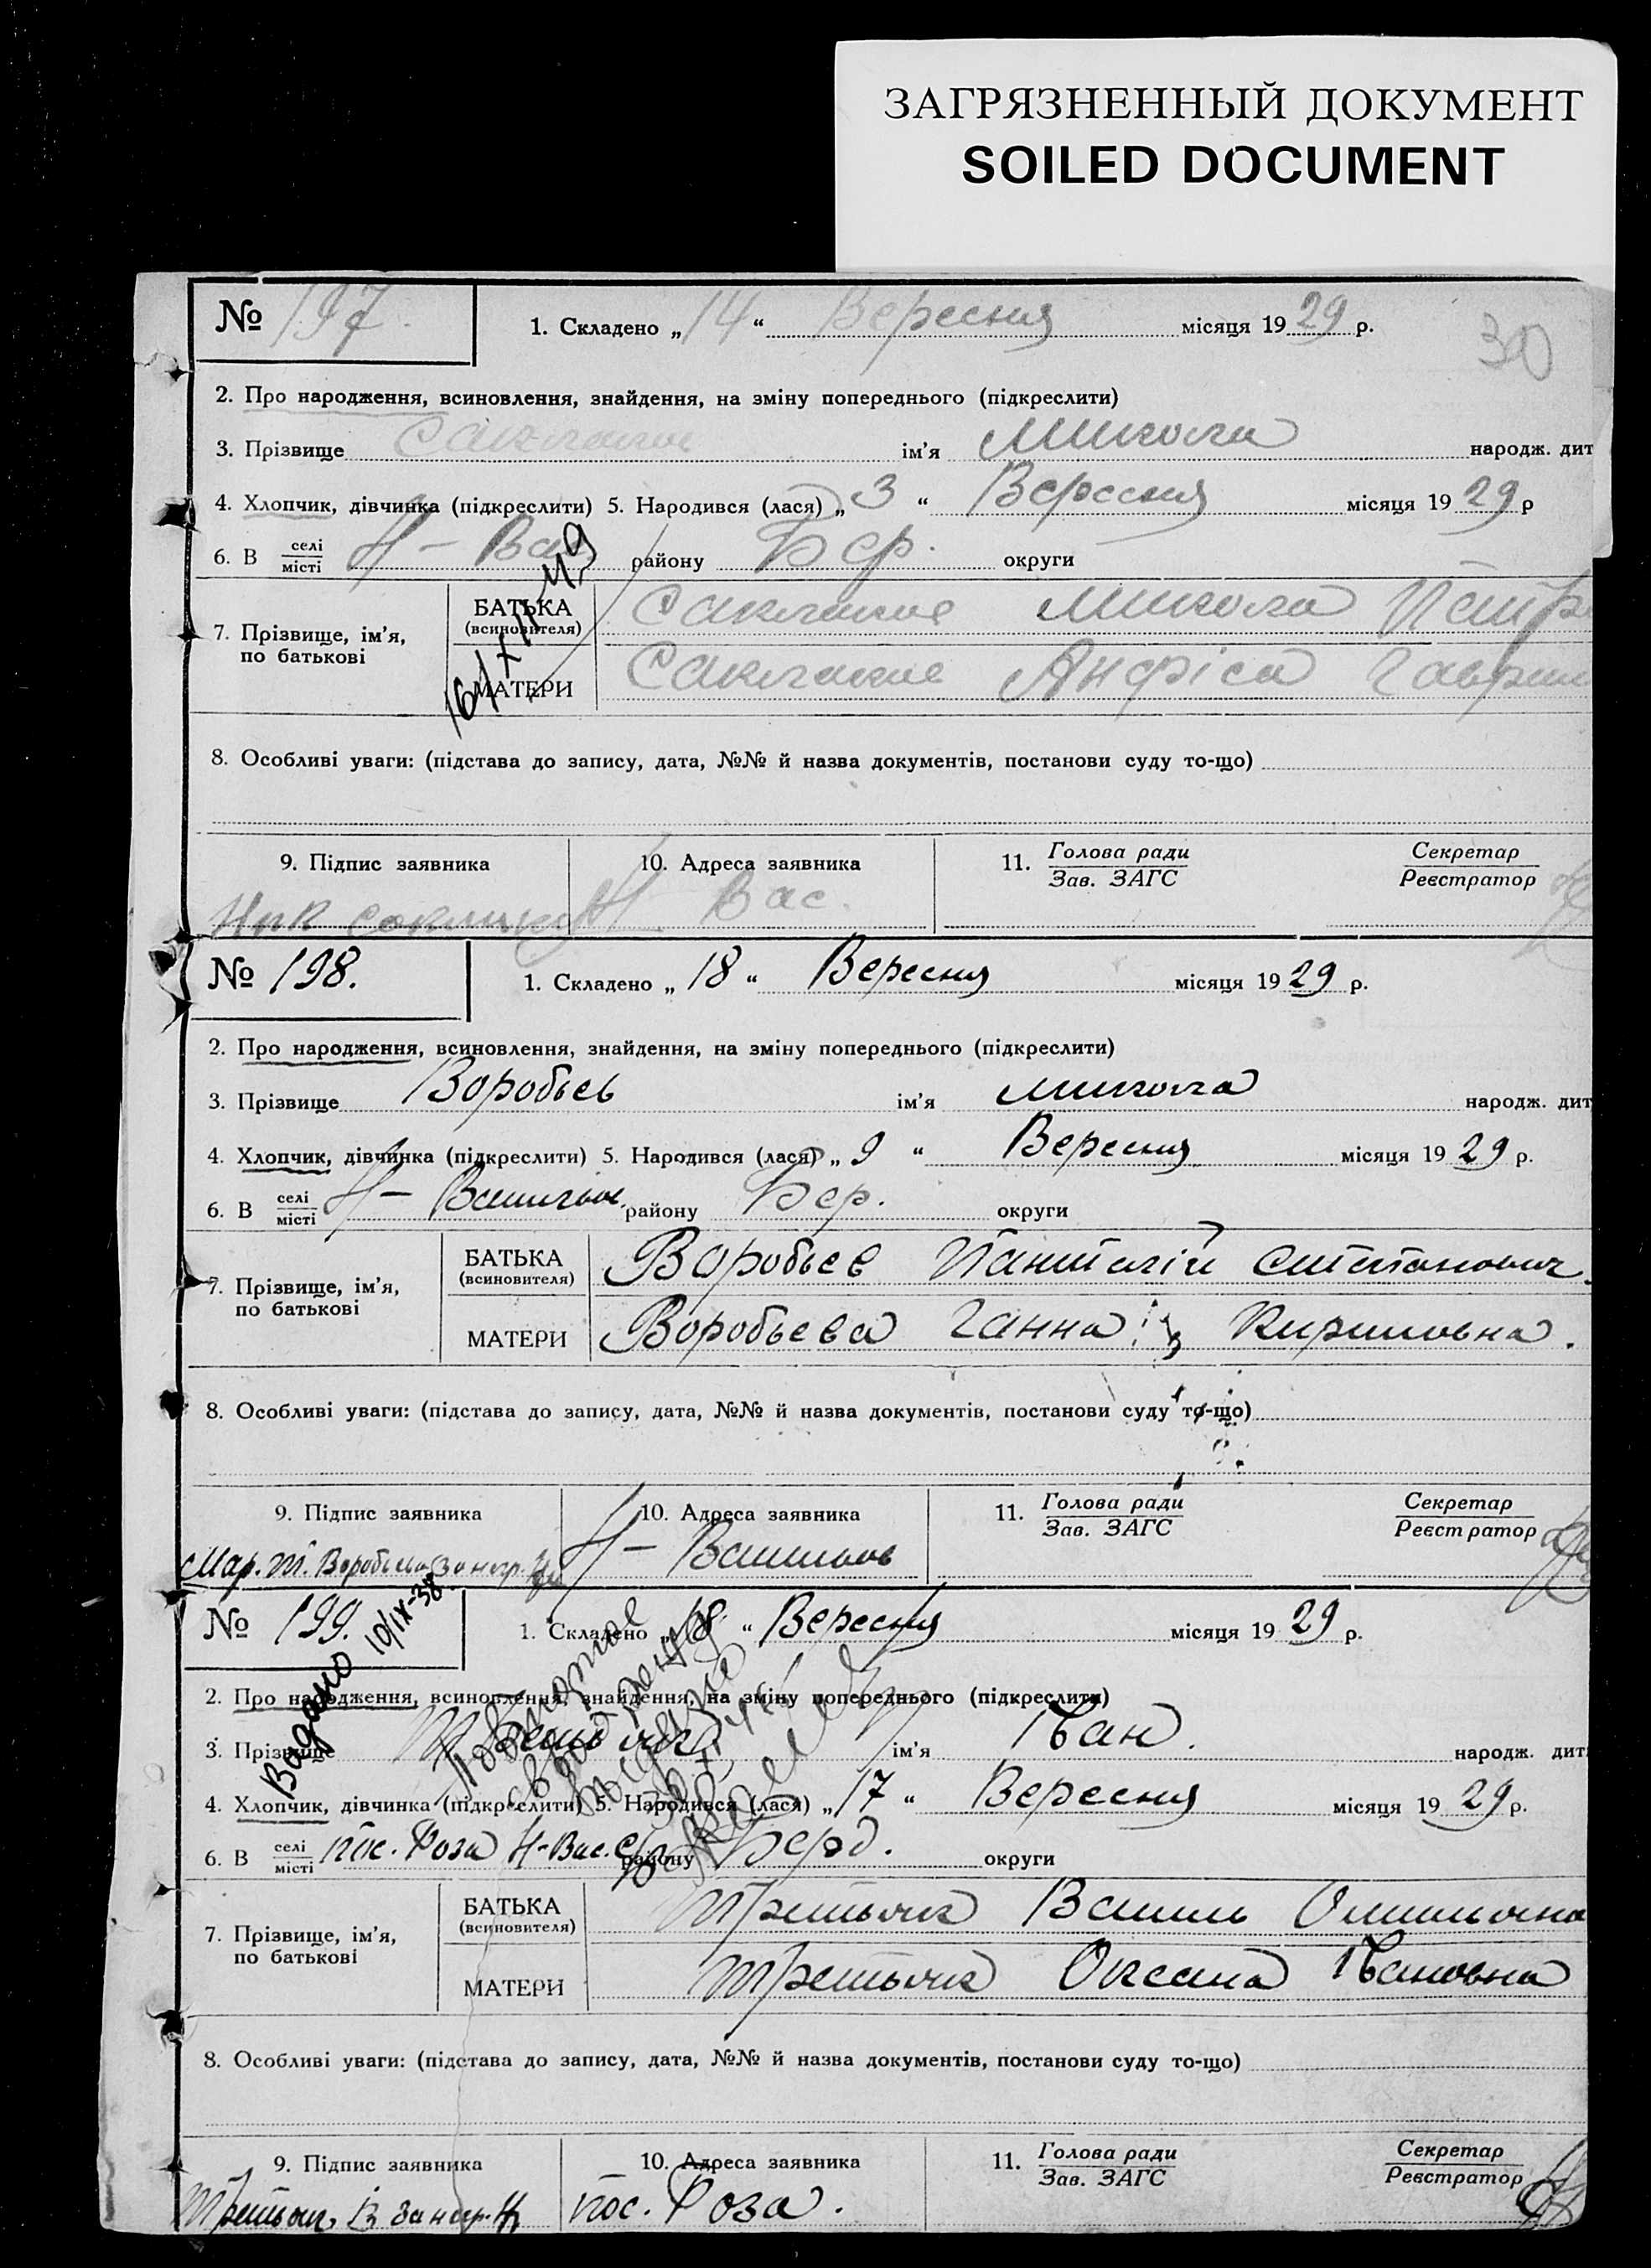 ЗАГРЯЗНЕННЫЙ ДОКУМЕНТ
SOILED DOCUMENT
№ 197. 1. Складено „14“ Вересня місяця 1929 р.
30
2. Про народження, всиновлення, знайдення, на зміну попереднього (підкреслити)
3. Прізвище ім'я Микола народж. дит
4. Хлопчик, дівчинка (підкреслити) 5. Народився (лася) „3“ Вересня місяця 1929 р
6. В селі/місті Н – Вас. району Бер. округи
16/XII 49
7. Прізвище, ім'я, по батькові
БАТЬКА (всиновителя) Микола Петр
МАТЕРИ Анфіса Гаврил
8. Особливі уваги: (підстава до запису, дата, №№ й назва документів, постанови суду то-що)
9. Підпис заявника 10. Адреса заявника 11. Голова ради/Зав. ЗАГС Секретар/Реєстратор
Ник Н Вас.
№ 198. 1. Складено „18“ Вересня місяця 1929 р.
2. Про народження, всиновлення, знайдення, на зміну попереднього (підкреслити)
3. Прізвище Воробьев ім'я Микола народж. дит
4. Хлопчик, дівчинка (підкреслити) 5. Народився (лася) „9“ Вересня місяця 1929 р.
6. В селі/місті Н – Васильов. району Бер. округи
7. Прізвище, ім'я, по батькові
БАТЬКА (всиновителя) Воробьев Пантилій Степанович.
МАТЕРИ Воробьева Ганна Кириловна.
8. Особливі уваги: (підстава до запису, дата, №№ й назва документів, постанови суду то-що)
9. Підпис заявника 10. Адреса заявника 11. Голова ради/Зав. ЗАГС Секретар/Реєстратор
за негр. Н – Васильов
№ 199. 1. Складено „18“ Вересня місяця 1929 р.
Видано 10/IX-38
Повторное
2. Про народження, всиновлення, знайдення, на зміну попереднього (підкреслити)
3. Прізвище Третьяк ім'я Іван. народж. дит
4. Хлопчик, дівчинка (підкреслити) 5. Народився (лася) „17“ Вересня місяця 1929 р.
6. В селі/місті пос. Роза Н-Вас. с/р району Берд. округи
7. Прізвище, ім'я, по батькові
БАТЬКА (всиновителя) Третьяк Василь Омельяно
МАТЕРИ Третьяк Оксана Івановна
8. Особливі уваги: (підстава до запису, дата, №№ й назва документів, постанови суду то-що)
9. Підпис заявника 10. Адреса заявника 11. Голова ради/Зав. ЗАГС Секретар/Реєстратор
Третьяк В за негр. пос. Роза.